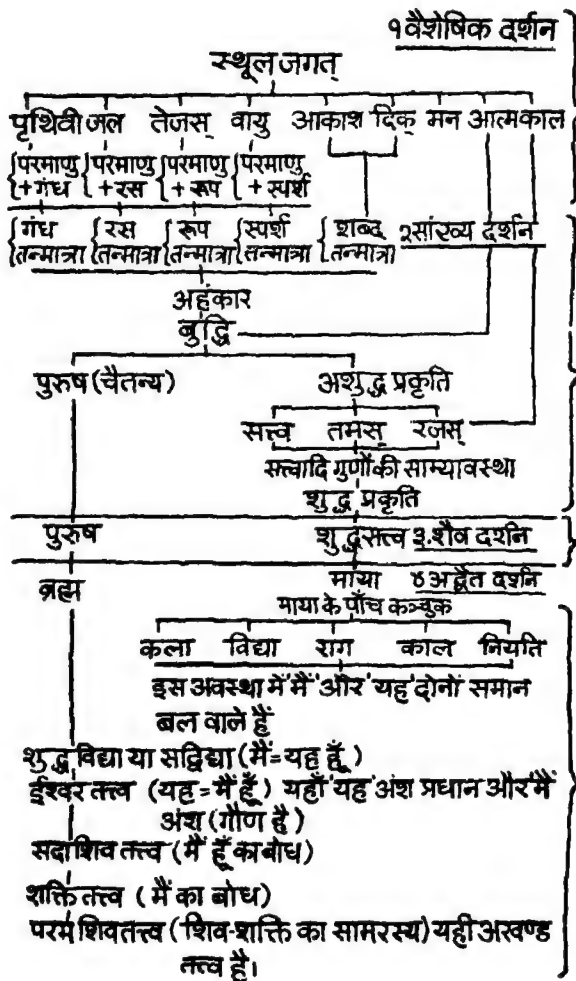 १ वैशेषिक दर्शन
स्थूल जगत्
पृथिवी जल तेजस् वायु आकाश दिक् मन आत्म काल
{परमाणु {परमाणु {परमाणु {परमाणु
+गंध +रस +रूप +स्पर्श
{गंध {रस {रूप {स्पर्श {शब्द २सांख्य दर्शन
तन्मात्रा तन्मात्रा तन्मात्रा तन्मात्रा तन्मात्रा
अहंकार
बुद्धि
पुरुष (चैतन्य) अशुद्ध प्रकृति
सत्त्व तमस् रजस्
सत्त्वादि गुणों की साम्यावस्था
शुद्ध प्रकृति
पुरुष शुद्धसत्त्व ३.शैव दर्शन
ब्रह्म माया ४अद्वैत दर्शन
माया के पाँच कञ्चुक
कला विद्या राग काल नियति
इस अवस्था में 'मैं' और 'यह' दोनों समान
बल वाले हैं
शुद्ध विद्या या सद्विद्या (मैं=यह हूँ)
ईश्वर तत्त्व (यह=मैं हूँ) यहाँ 'यह' अंश प्रधान और 'मैं'
अंश (गौण है)
सदाशिव तत्त्व (मैं हूँ का बोध)
शक्ति तत्त्व (मैं का बोध)
परम शिवतत्त्व (शिव-शक्ति का सामरस्य) यही अखण्ड
तत्त्व है।